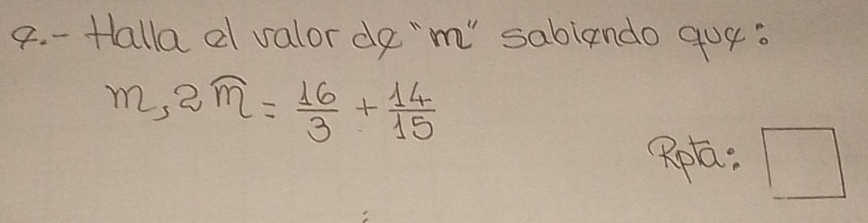 4.- Halla el valor de "m" sabiendo que:
m,2m̂ = 16/3 + 14/15
Rpta: